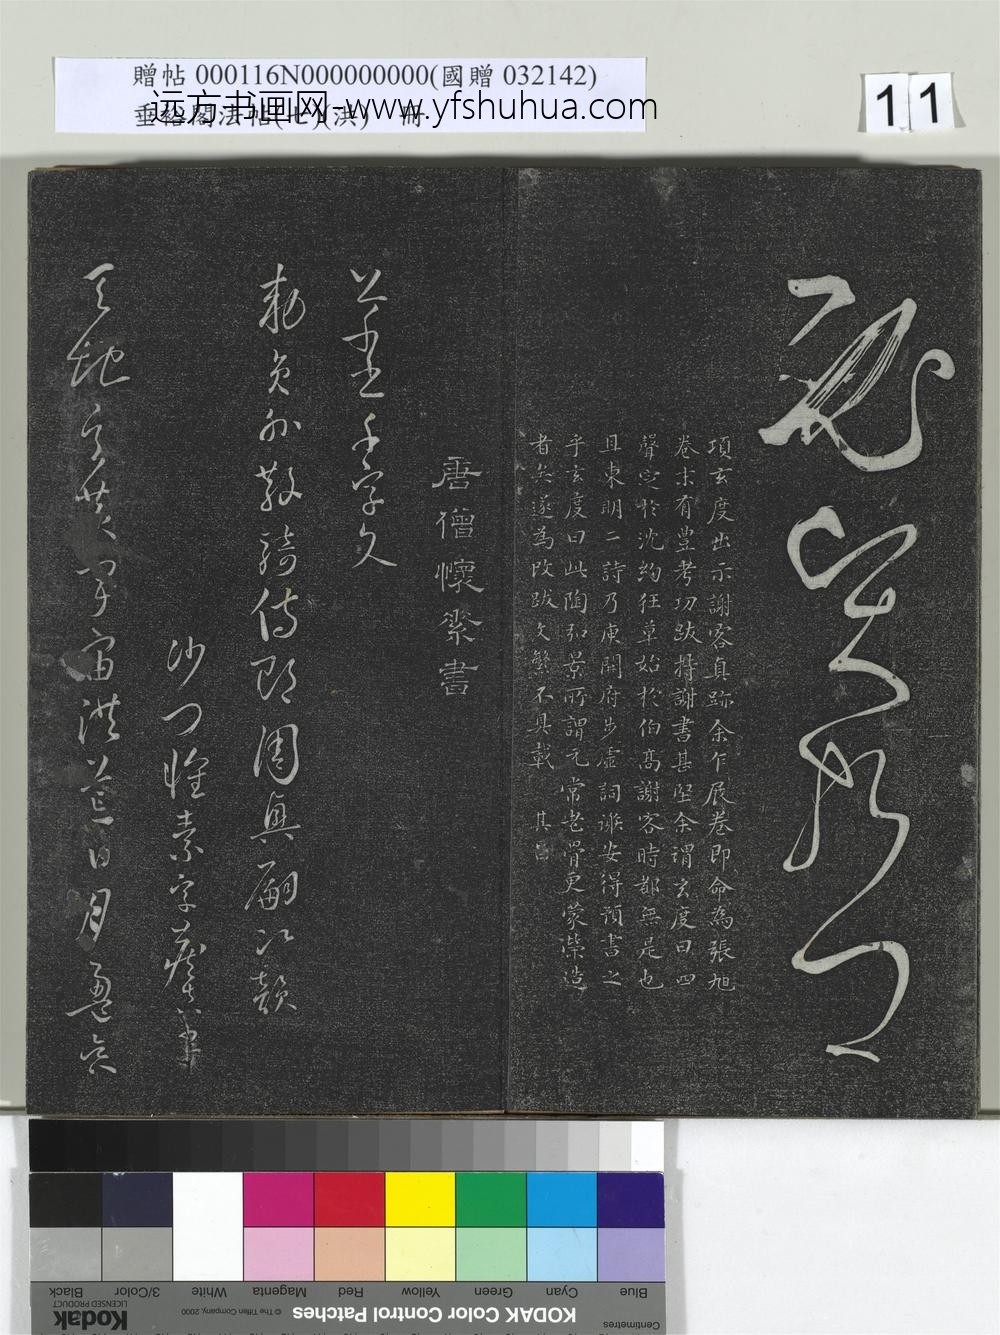 贈帖 000116N000000000(國贈 032142)
垂裕閣法帖(七)(洪) 冊
远方书画网-www.yfshuhua.com
11
項玄度出示謝客真跡余乍展卷即命為張旭
卷末有豐考功跋持謝書甚堅余謂玄度曰四
聲定於沈約狂草始於伯高謝客時都無是也
且東明二詩乃庾開府步虛詞謝安得預書之
乎玄度曰此陶弘景所謂元常老骨更蒙榮造
者矣遂為改跋文繁不具載 其昌
唐僧懷素書
千字文
勅員外散騎侍郎周興嗣次韻
沙門懷素字藏真
天地玄黃宇宙洪荒日月盈
Blue
Cyan
Green
Yellow
Red
Magenta
White
3/Color
Black
Centimetres
KODAK Color Control Patches
© The Tiffen Company, 2000
Kodak
LICENSED PRODUCT